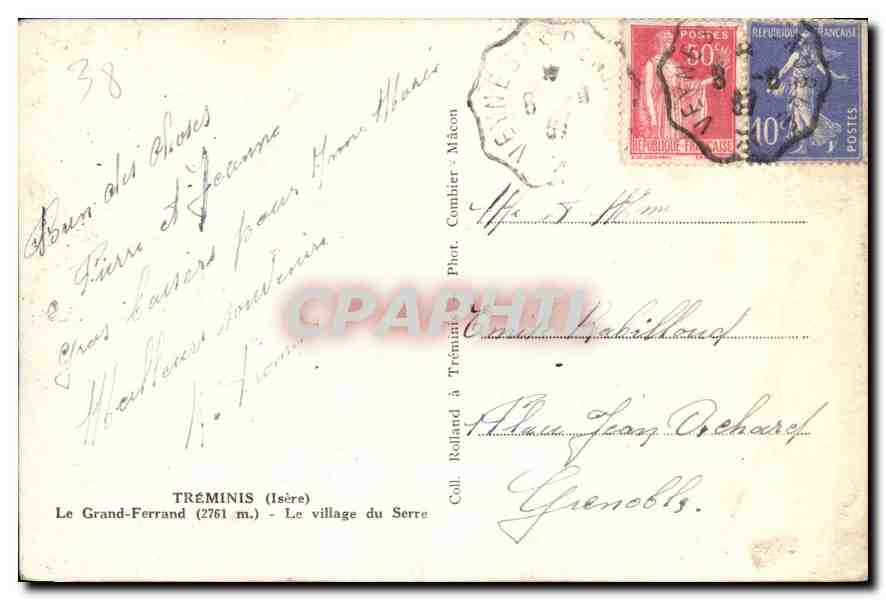 38
Bien des choses
à Pierre et Jeanne
Gros baisers pour Anne Marie
Meilleurs souvenirs
TRÉMINIS (Isère)
Le Grand-Ferrand (2761 m.) - Le village du Serre
Coll. Rolland à Tréminis Phot. Combier - Mâcon
CPAPHIL
VEYNES
8 8
37
POSTES
50 c
RÉPUBLIQUE-FRANÇAISE
VEYNES
8 8
37
RÉPUBLIQUE FRANÇAISE
10 c
POSTES
Mr et Mme
Emile Rabilloud
Place Jean Achard
Grenoble.